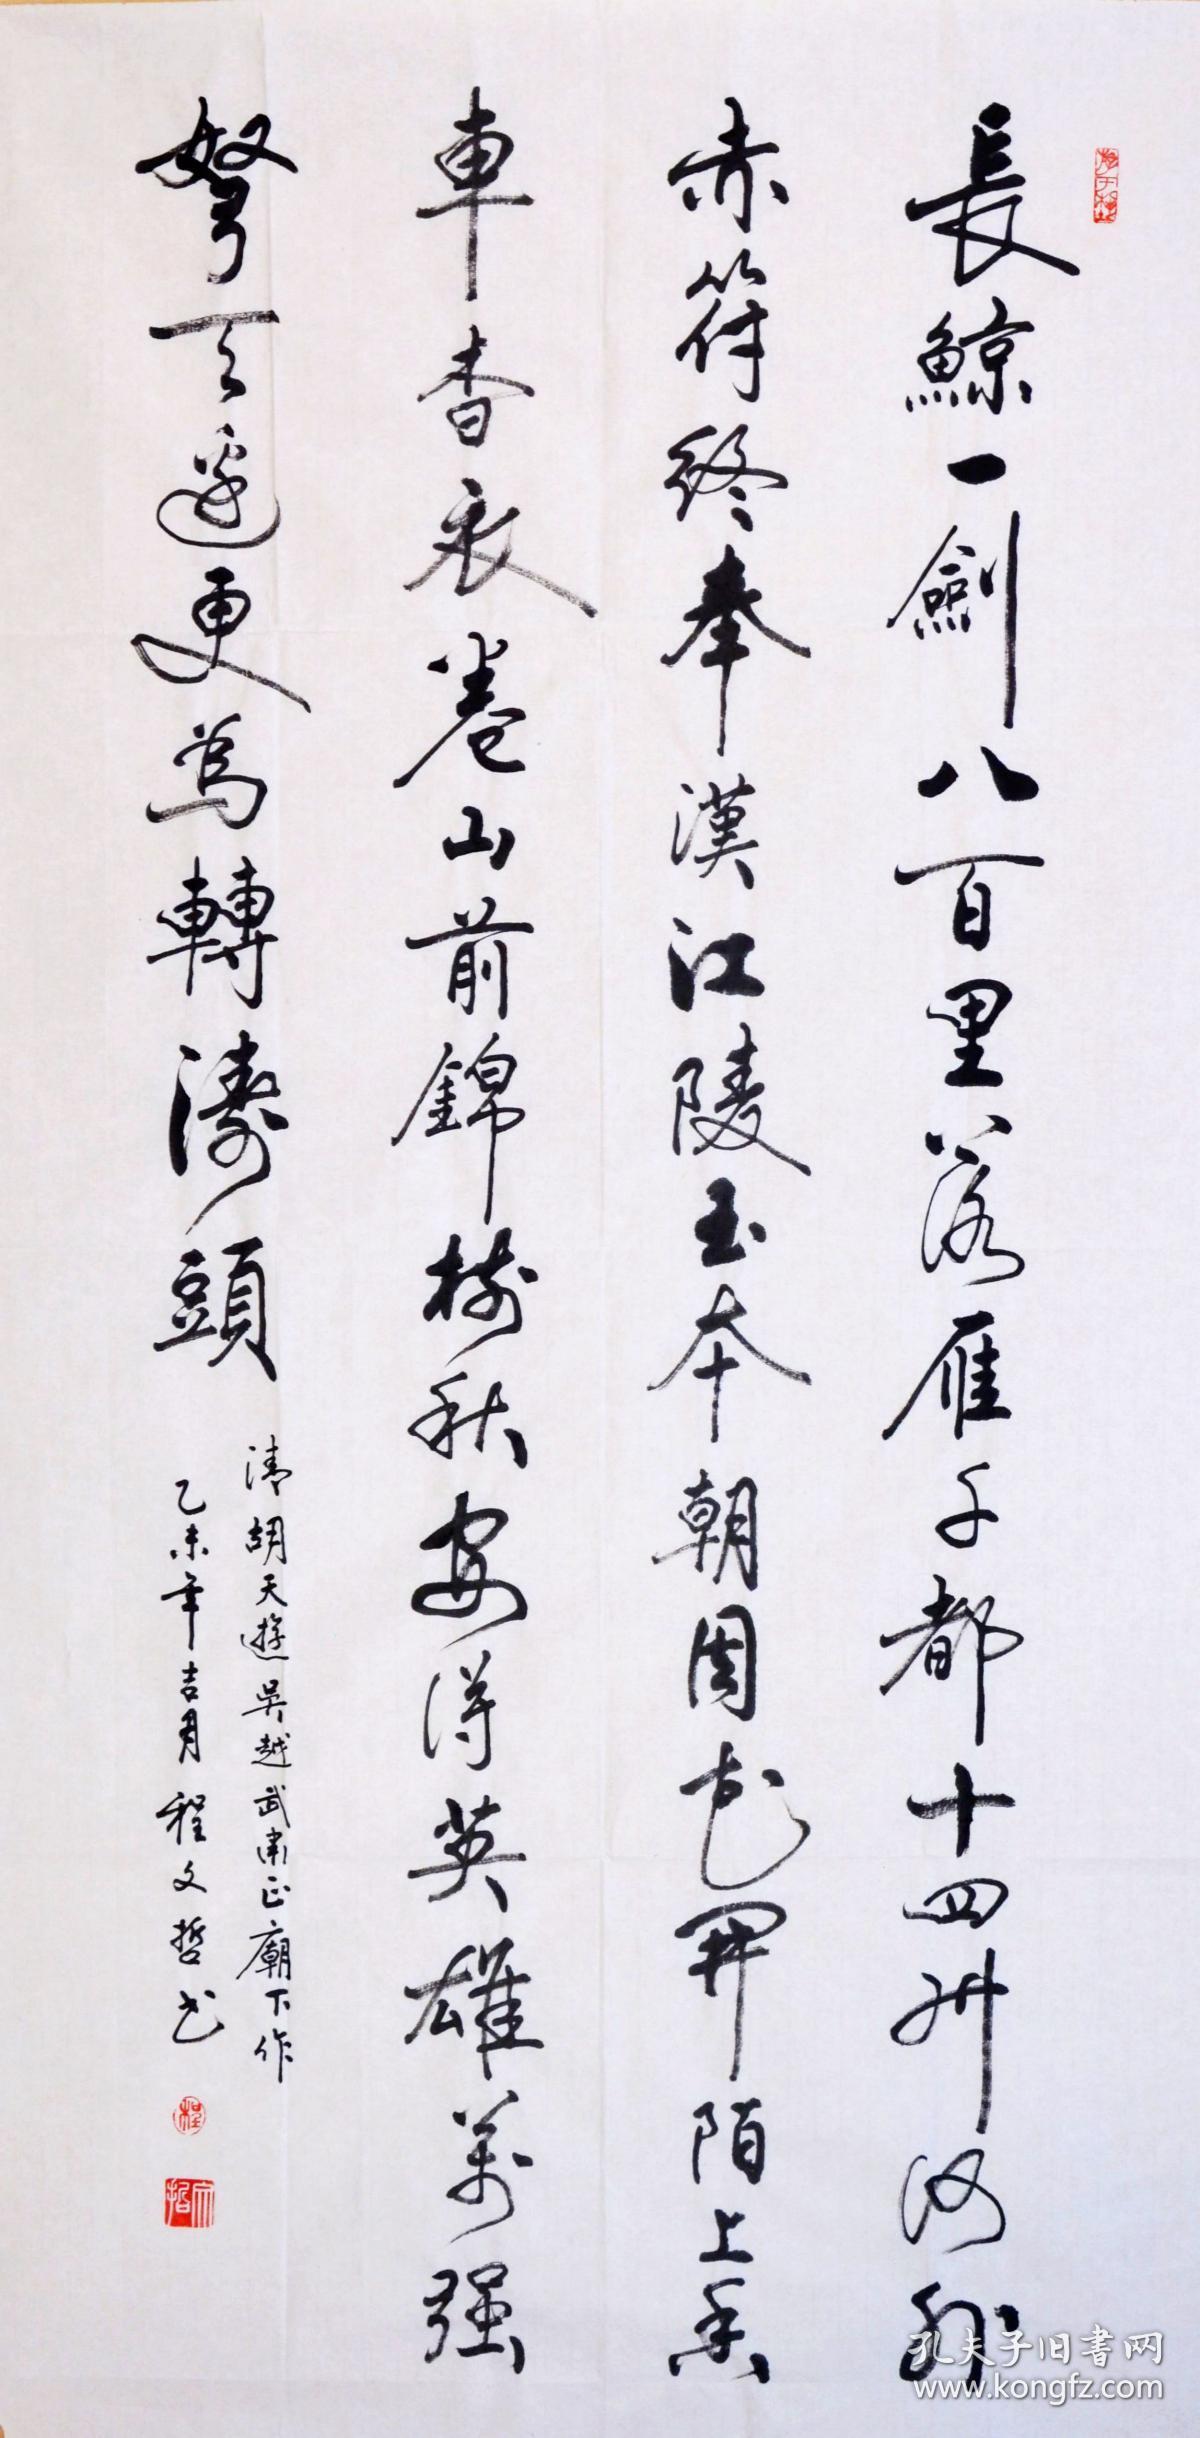 長鯨一劍八百里落雁千都十四州河
赤符終奉漢江陵玉本朝周花開陌上香
車杳衣卷山前錦樹秋安得英雄萬强
弩天邊更為轉濤頭
清胡天遊吳越武肅王廟下作
乙未年吉月程文哲书
程
文哲
孔夫子旧书网
www.kongfz.com